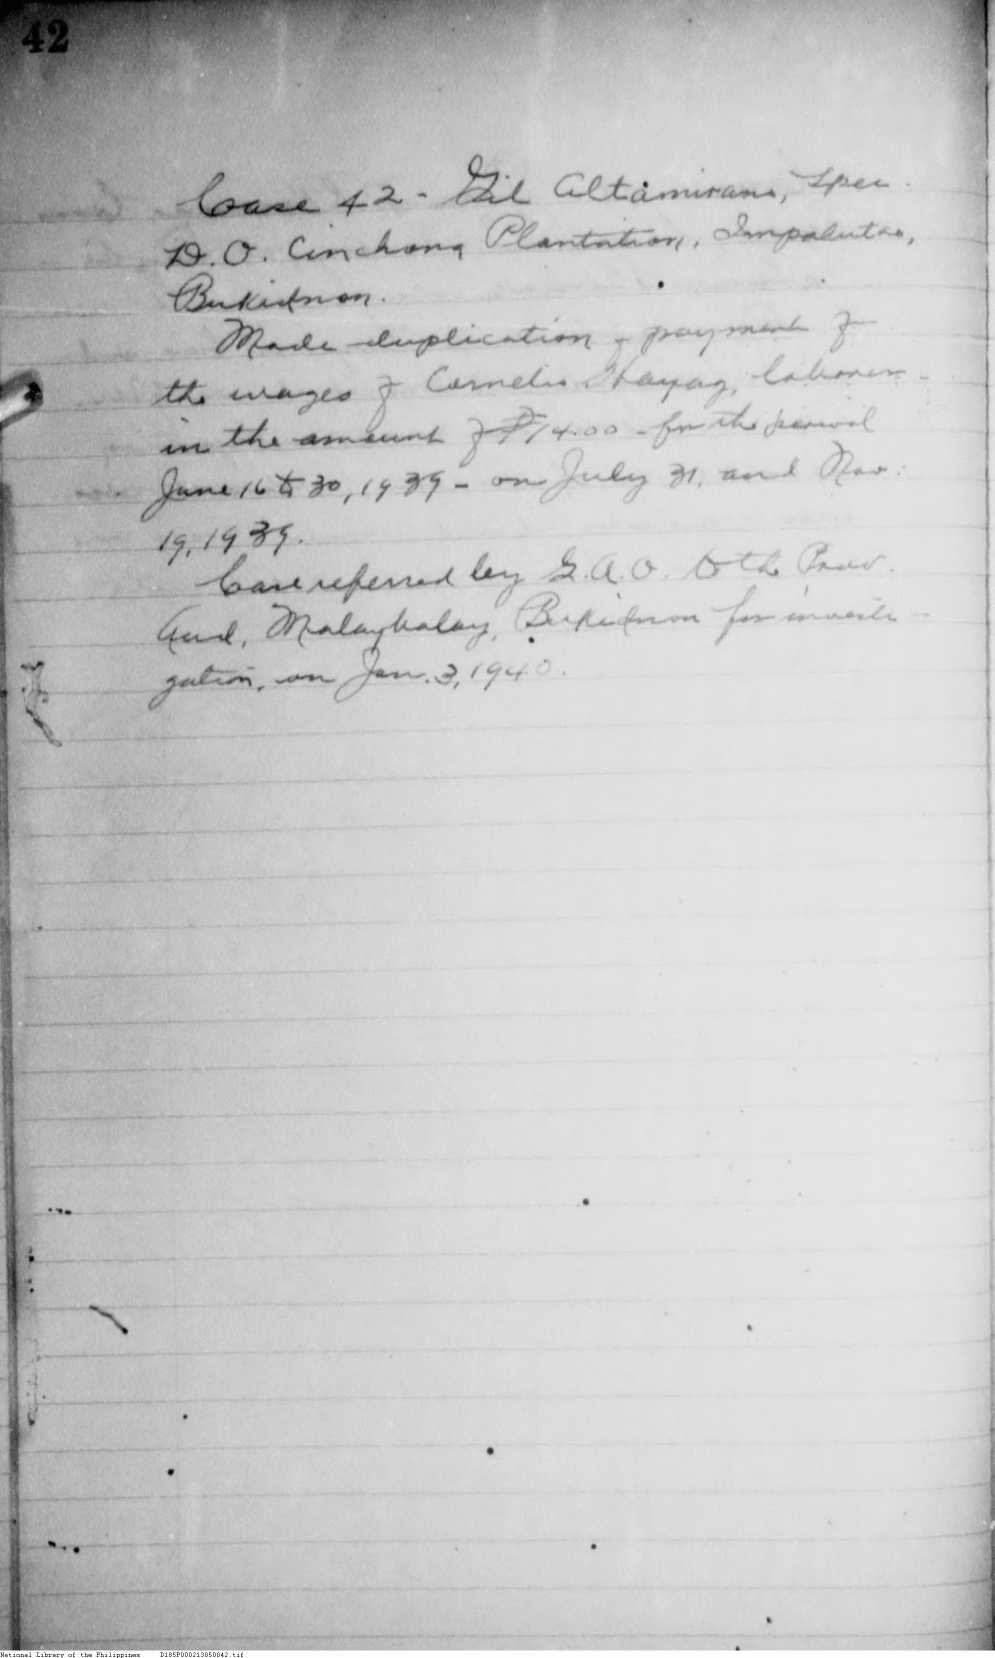 42
Case 42 - Gil Altamirano, Spec.
D. O. Cinchona Plantation, Impalutao,
Bukidnon.
Made duplication of payment of
the wages of Cornelio Hayag, laborer -
in the amount of ₱14.00 - for the period
June 16 to 30, 1939 - on July 31, and Nov.
19, 1939.
Case referred by G.A.O. to the Prov.
Aud, Malaybalay, Bukidnon for investi-
gation, on Jan. 3, 1940.
National Library of the Philippines D185P000213050042.tif